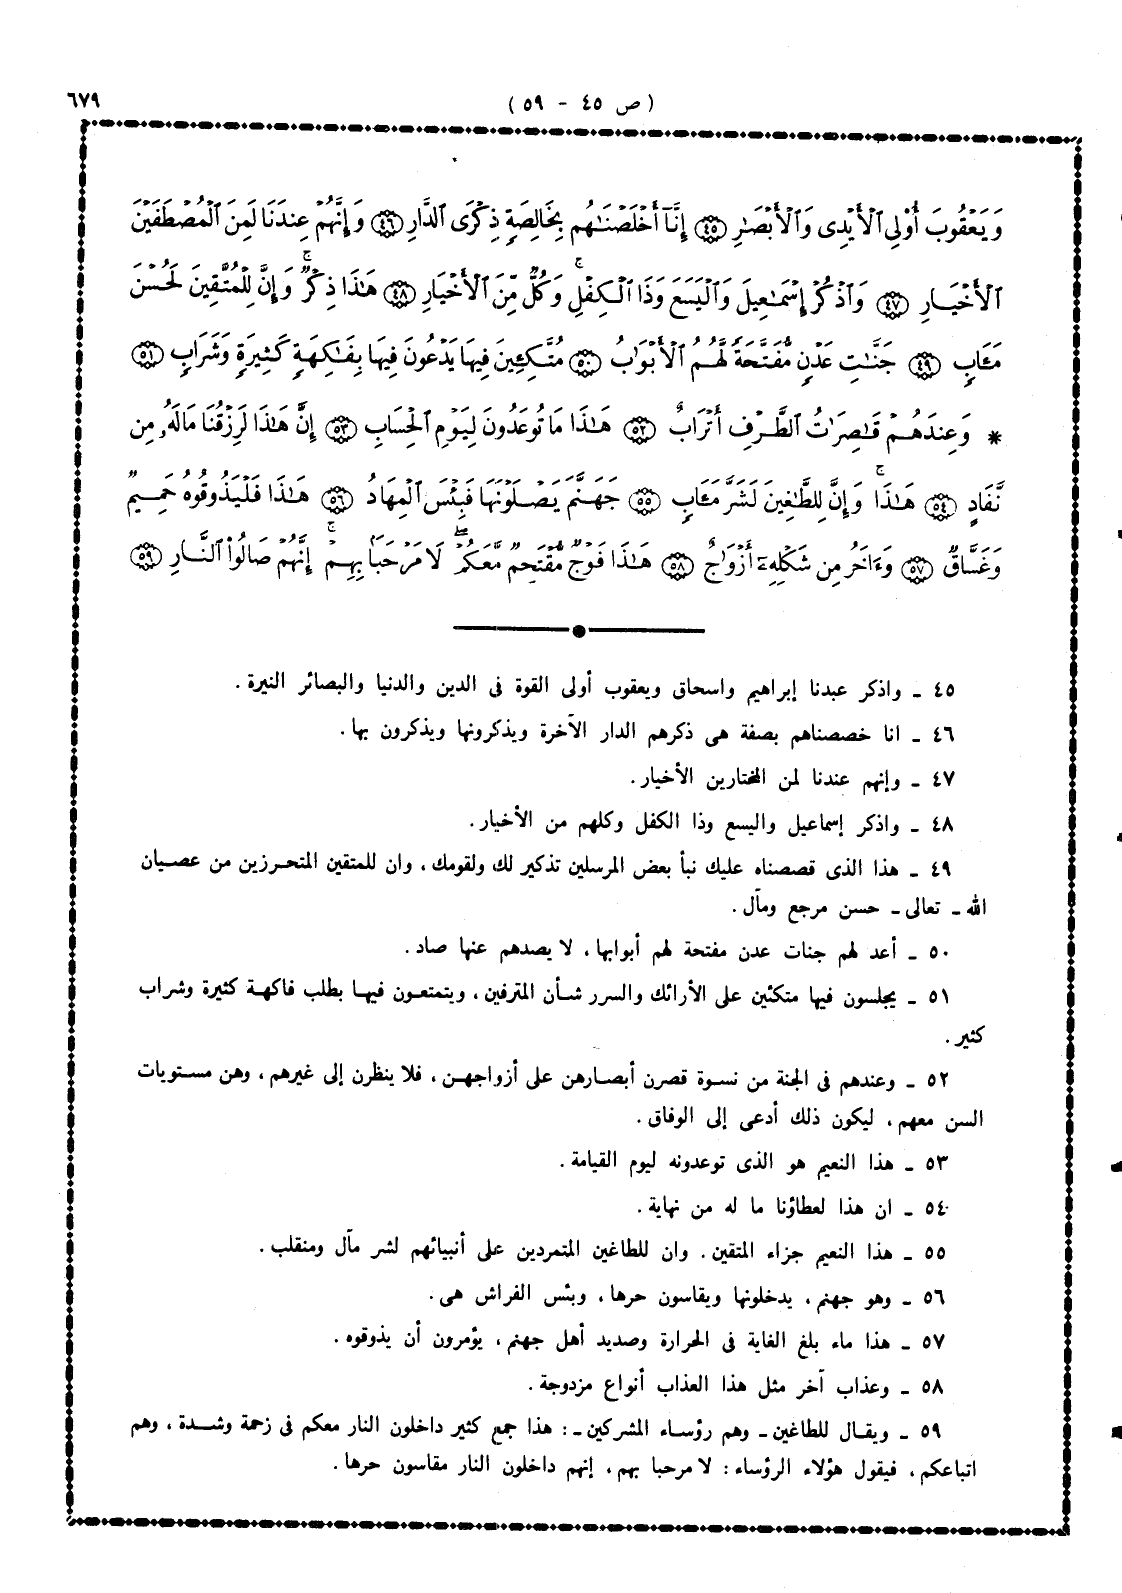 ٦٧٩
( ص ٤٥ - ٥٩ )
وَيَعْقُوبَ أُوْلِى ٱلْأَيْدِى وَٱلْأَبْصَٰرِ ٤٥ إِنَّآ أَخْلَصْنَٰهُم بِخَالِصَةٍ ذِكْرَى ٱلدَّارِ ٤٦ وَإِنَّهُمْ عِندَنَا لَمِنَ ٱلْمُصْطَفَيْنَ
ٱلْأَخْيَارِ ٤٧ وَٱذْكُرْ إِسْمَٰعِيلَ وَٱلْيَسَعَ وَذَا ٱلْكِفْلِ ۖ وَكُلٌّ مِّنَ ٱلْأَخْيَارِ ٤٨ هَٰذَا ذِكْرٌ ۚ وَإِنَّ لِلْمُتَّقِينَ لَحُسْنَ
مَـَٔابٍ ٤٩ جَنَّٰتِ عَدْنٍ مُّفَتَّحَةً لَّهُمُ ٱلْأَبْوَٰبُ ٥٠ مُتَّكِـِٔينَ فِيهَا يَدْعُونَ فِيهَا بِفَٰكِهَةٍ كَثِيرَةٍ وَشَرَابٍ ٥١
* وَعِندَهُمْ قَٰصِرَٰتُ ٱلطَّرْفِ أَتْرَابٌ ٥٢ هَٰذَا مَا تُوعَدُونَ لِيَوْمِ ٱلْحِسَابِ ٥٣ إِنَّ هَٰذَا لَرِزْقُنَا مَالَهُۥ مِن
نَّفَادٍ ٥٤ هَٰذَا ۚ وَإِنَّ لِلطَّٰغِينَ لَشَرَّ مَـَٔابٍ ٥٥ جَهَنَّمَ يَصْلَوْنَهَا فَبِئْسَ ٱلْمِهَادُ ٥٦ هَٰذَا فَلْيَذُوقُوهُ حَمِيمٌ
وَغَسَّاقٌ ٥٧ وَءَاخَرُ مِن شَكْلِهِۦٓ أَزْوَٰجٌ ٥٨ هَٰذَا فَوْجٌ مُّقْتَحِمٌ مَّعَكُمْ ۖ لَا مَرْحَبًۢا بِهِمْ ۚ إِنَّهُمْ صَالُوا۟ ٱلنَّارِ ٥٩
٤٥ - واذكر عبدنا إبراهيم واسحاق ويعقوب أولى القوة فى الدين والدنيا والبصائر النيرة .
٤٦ - انا خصصناهم بصفة هى ذكرهم الدار الآخرة ويذكرونها ويذكرون بها .
٤٧ - وإنهم عندنا لمن المختارين الأخيار .
٤٨ - واذكر إسماعيل واليسع وذا الكفل وكلهم من الأخيار .
٤٩ - هذا الذى قصصناه عليك نبأ بعض المرسلين تذكير لك ولقومك ، وان للمتقين المتحرزين من عصيان
الله - تعالى - حسن مرجع ومآل .
٥٠ - أعد لهم جنات عدن مفتحة لهم أبوابها ، لا يصدهم عنها صاد .
٥١ - يجلسون فيها متكئين على الأرائك والسرر شأن المترفين ، ويتمتعون فيها بطلب فاكهة كثيرة وشراب
كثير .
٥٢ - وعندهم فى الجنة من نسوة قصرن أبصارهن على أزواجهن ، فلا ينظرن إلى غيرهم ، وهن مستويات
السن معهم ، ليكون ذلك أدعى إلى الوفاق .
٥٣ - هذا النعيم هو الذى توعدونه ليوم القيامة .
٥٤ - ان هذا لعطاؤنا ما له من نهاية .
٥٥ - هذا النعيم جزاء المتقين . وان للطاغين المتمردين على أنبيائهم لشر مآل ومنقلب .
٥٦ - وهو جهنم ، يدخلونها ويقاسون حرها ، وبئس الفراش هى .
٥٧ - هذا ماء بلغ الغاية فى الحرارة وصديد أهل جهنم ، يؤمرون أن يذوقوه .
٥٨ - وعذاب آخر مثل هذا العذاب أنواع مزدوجة .
٥٩ - ويقال للطاغين - وهم رؤساء المشركين - : هذا جمع كثير داخلون النار معكم فى زحمة وشدة ، وهم
اتباعكم ، فيقول هؤلاء الرؤساء : لا مرحبا بهم ، إنهم داخلون النار مقاسون حرها .